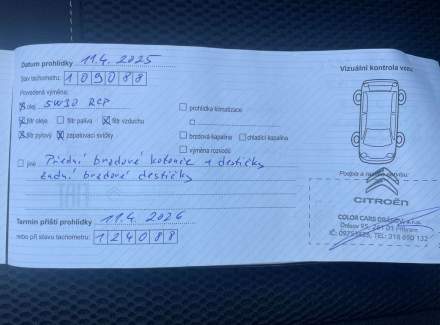 Datum prohlídky 11.4. 2025
Stav tachometru: 109088
Provedená výměna:
olej 5W30 RCP
filtr oleje filtr paliva filtr vzduchu
filtr pylový zapalovací svíčky
prohlídka klimatizace
brzdová kapalina chladící kapalina
výměna rozvodů
jiné Přední brzdové kotouče + destičky
zadní brzdové destičky
Termín příští prohlídky 11.4. 2026
nebo při stavu tachometru: 124088
Vizuální kontrola vozu:
Podpis a
CITROËN
COLOR CARS
95, 261 01 Příbram
TEL: 318 690 132